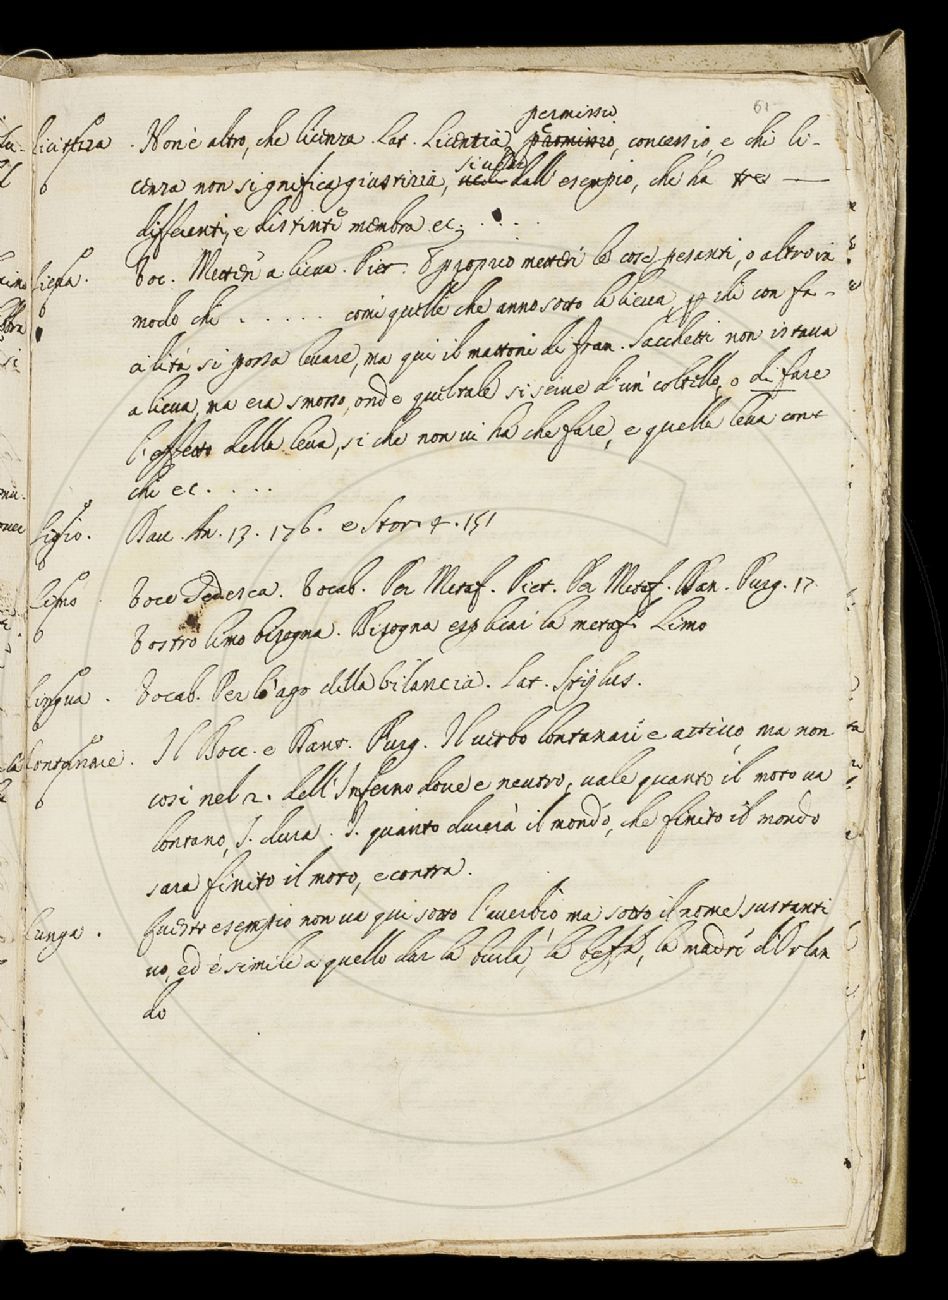 61
permissio
Licitezza . Non è altro, che licenza. Lat. Licentia, promissio, concessio, e che li-
si vede
cenza non significa giustizia, vede dall' esempio, che ha tre —
differenti, e distinti membra ec. . . .
Lieva . Boc. Metter a lieva. Pict. È proprio metter le cose pesanti, o altro in
modo che . . . . . come quelle che anno sotto la lieva, che con fa-
cilità si possa levare, ma qui il mattone di Fran. Sacchetti non istava
a lieva, ma era smosso, onde quel tale si serve d'un coltello, o di fare
l'effetto della leva, si che non vi ha che fare, e quella leva con
chi ec. . . .
Ligio . Dav. An. 13. 176. e Stor. 4. 151
Limo . Voce Tedesca. Vocab. Per Metaf. Pict. Per Metaf. Dan. Purg. 17
Vostro limo bisogna. Bisogna esplicar la metaf. Limo
Lingua . Vocab. Per l'ago della bilancia. Lat. Stylus.
Lontanare . Il Bocc. e Dant. Purg. Il verbo lontanare è attivo, ma non
così nel 2. dell'Inferno dove è neutro, vale quanto il moto va
lontano, I. dura. I. quanto durerà il mondo, che finito il mondo
sarà finito il moto, e contra.
Lunga . Questo esempio non va qui sotto l'averbio ma sotto il nome sustanti
vo, ed è simile a quello dar la burla, la beffa, la madre d'Orlan
do